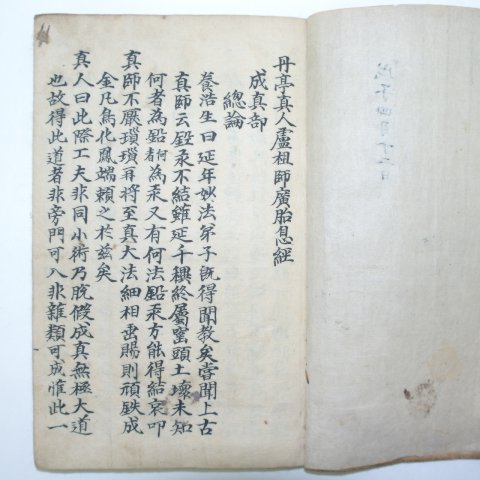 戊子四月十二日
丹亭真人盧祖師廣胎息經
成真部
總論
養浩生曰延年妙法弟子既得聞教矣嘗聞上古
真師云鉛汞不結雖延千禩終屬窰頭土壞未知
何者為鉛何者為汞又有何法鉛汞方能得結哀叩
真師不厭瑣瑣再將至真大法細相啚賜則頑鉄成
金凡鳥化鳳端賴之於兹矣
真人曰此際工夫非同小術乃脫假成真無極大道
也故得此道者非旁門可入非雜類可成惟此一